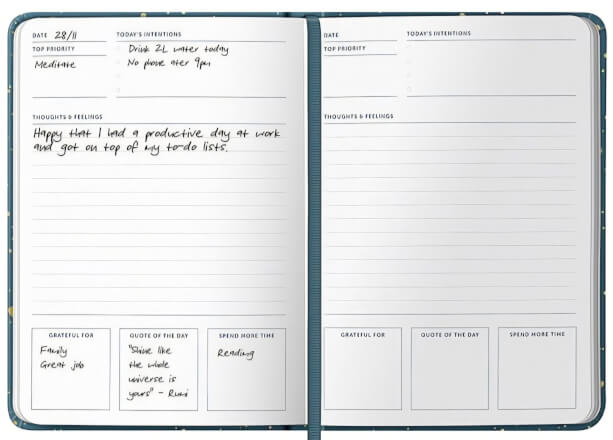 DATE 28/11
TODAY'S INTENTIONS
Drink 2L water today
No phone ater 9pm
TOP PRIORITY
Meditate
THOUGHTS & FEELINGS
Happy that I had a productive day at work
and got on top of my to-do lists.
GRATEFUL FOR
Family
Great job
QUOTE OF THE DAY
"Shine like
the whole
universe is
yours" - Rumi
SPEND MORE TIME
Reading
DATE
TODAY'S INTENTIONS
TOP PRIORITY
THOUGHTS & FEELINGS
GRATEFUL FOR
QUOTE OF THE DAY
SPEND MORE TIME